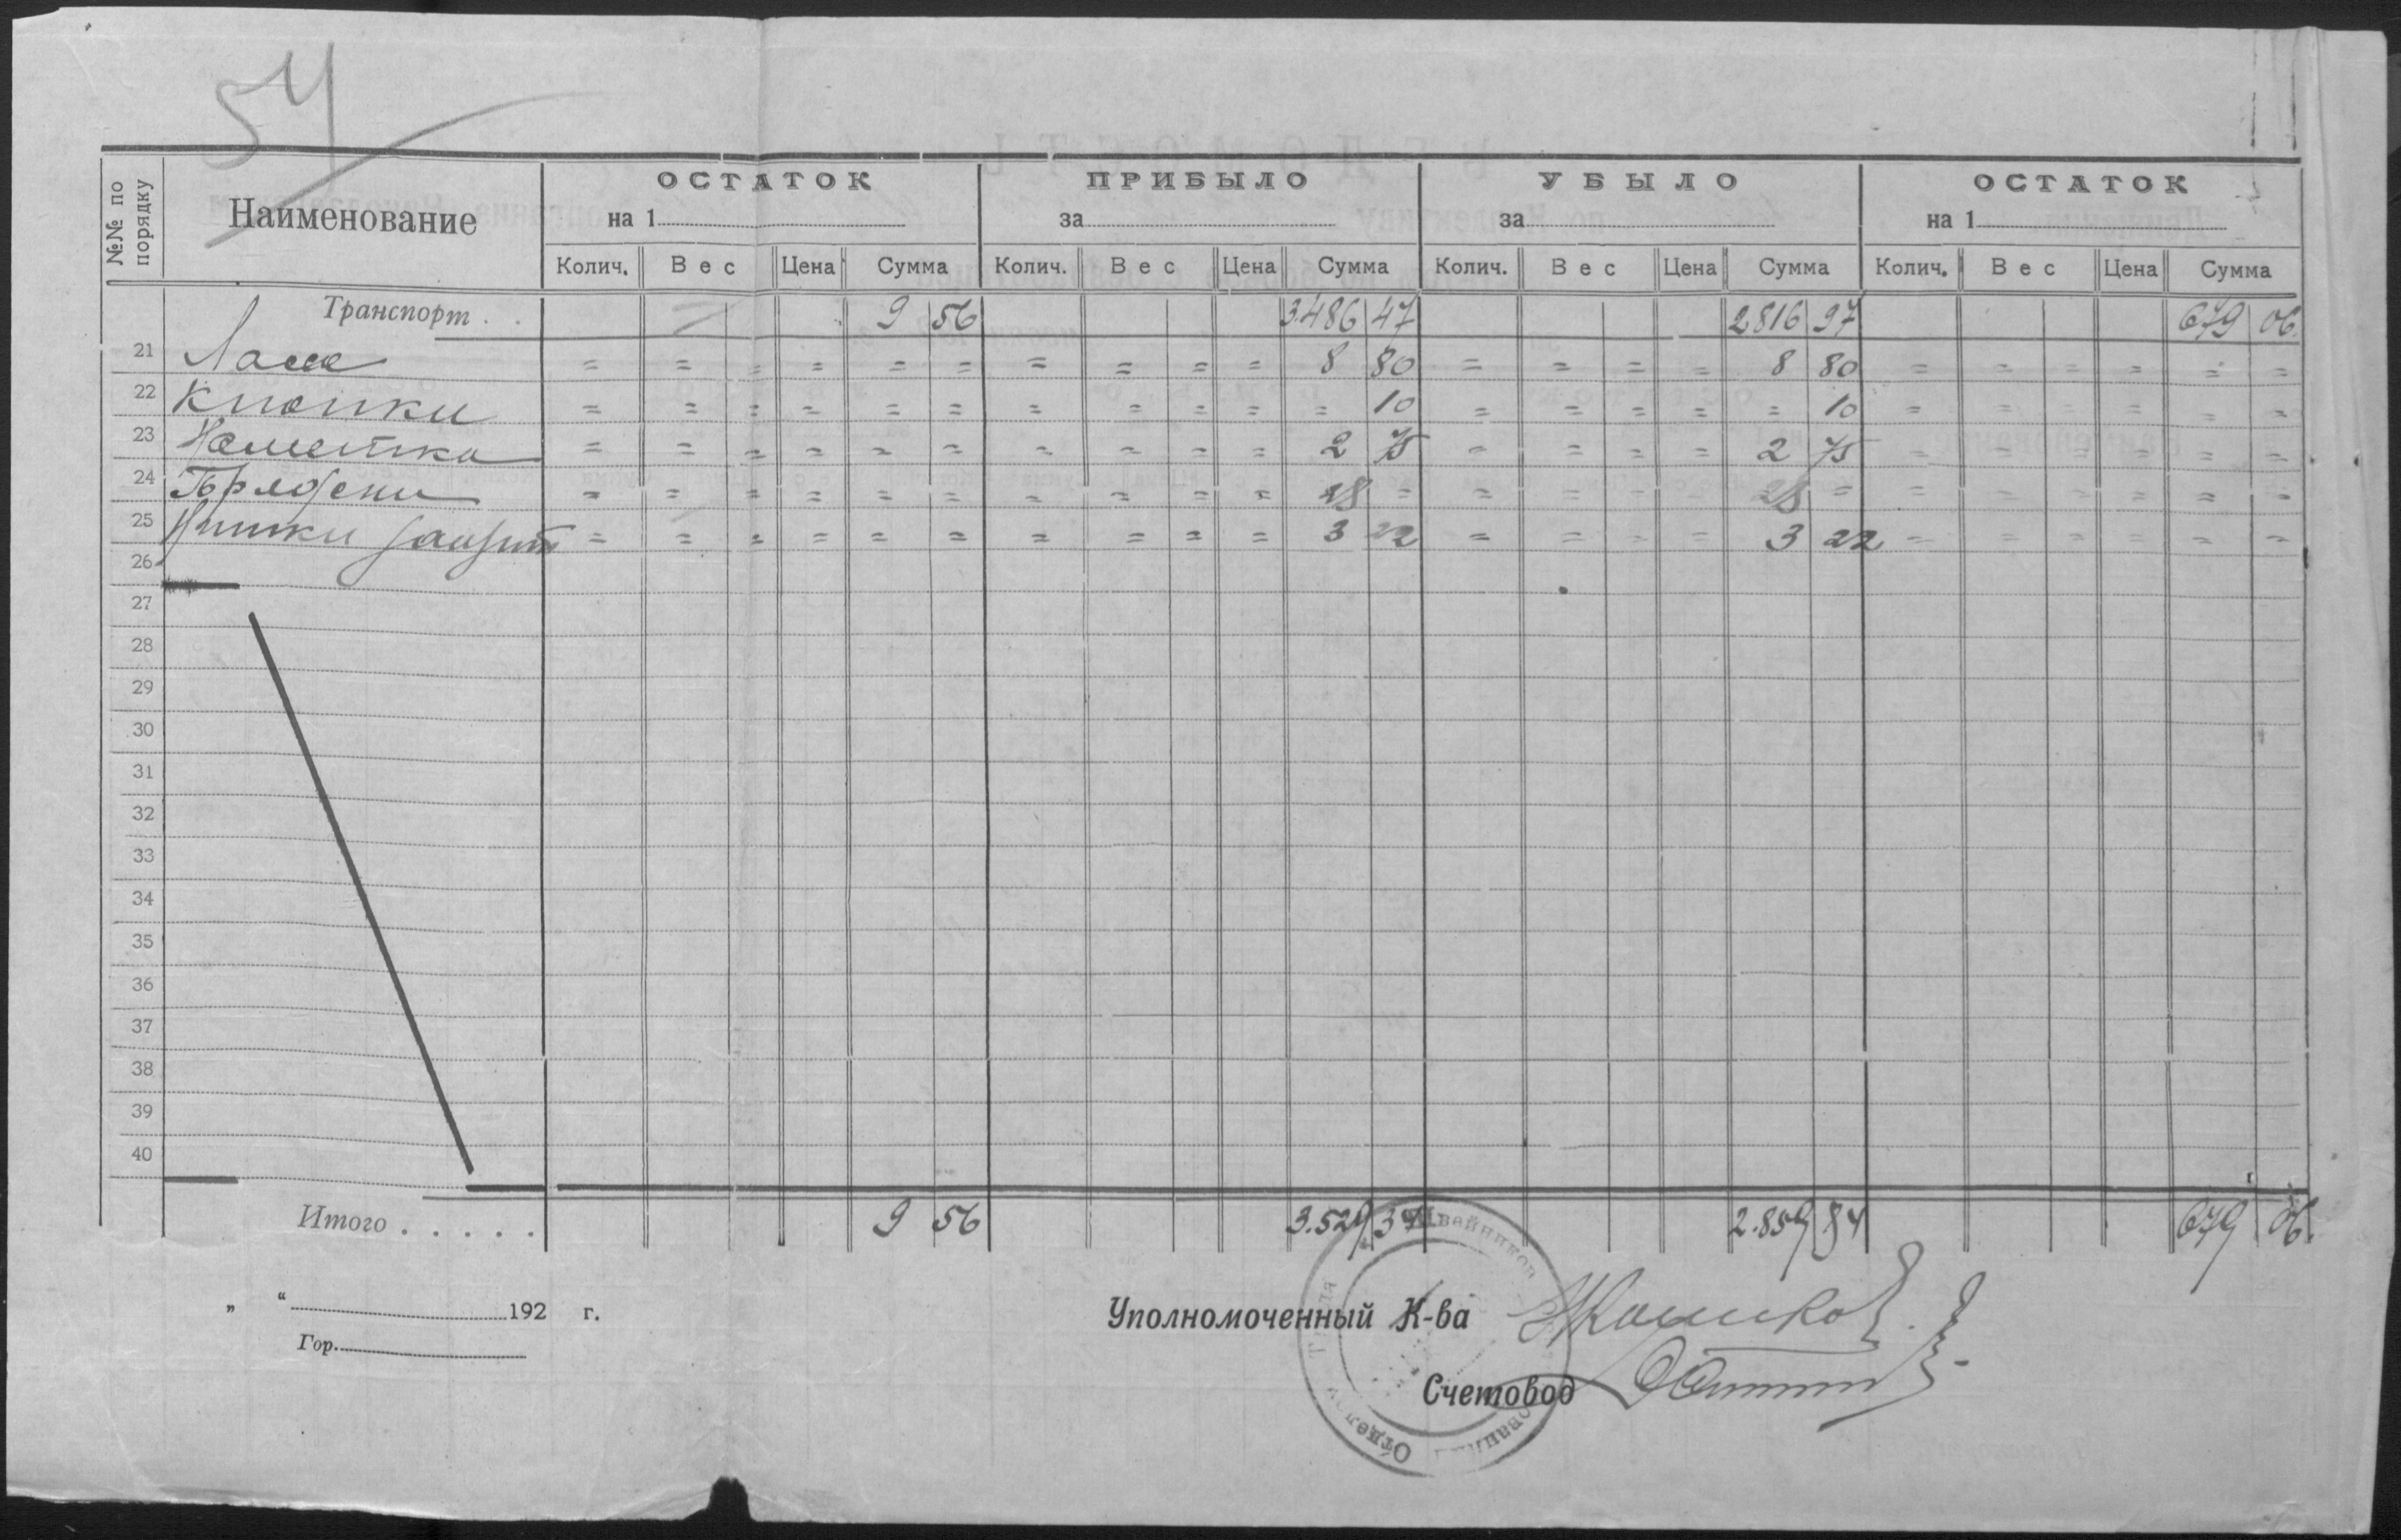 54
№№ по порядку Наименование ОСТАТОК на 1 ПРИБЫЛО за УБЫЛО за ОСТАТОК на 1
Колич. Вес Цена Сумма Колич. Вес Цена Сумма Колич. Вес Цена Сумма Колич. Вес Цена Сумма
Транспорт . . 9 56 3486 47 2816 97 679 06.
21 = = = = = = = = = = 8 80 = = = = 8 80 = = = = = =
22 Кнопки = = = = = = = = = = = 10 = = = = = 10 = = = = = =
23 = = = = = = = = = = 2 75 = = = = 2 75 = = = = = =
24 = = = = = = = = = = 28 = = = = = 28 = = = = = = =
25 Нитки = = = = = = = = = = 3 22 = = = = 3 22 = = = = = =
26
27
28
29
30
31
32
33
34
35
36
37
38
39
40
Итого . . . . . 9 56 3.529 34 2.859 84 679 06.
„ “ 192 г.
Гор.
Уполномоченный К-ва
Счетовод
Отдел